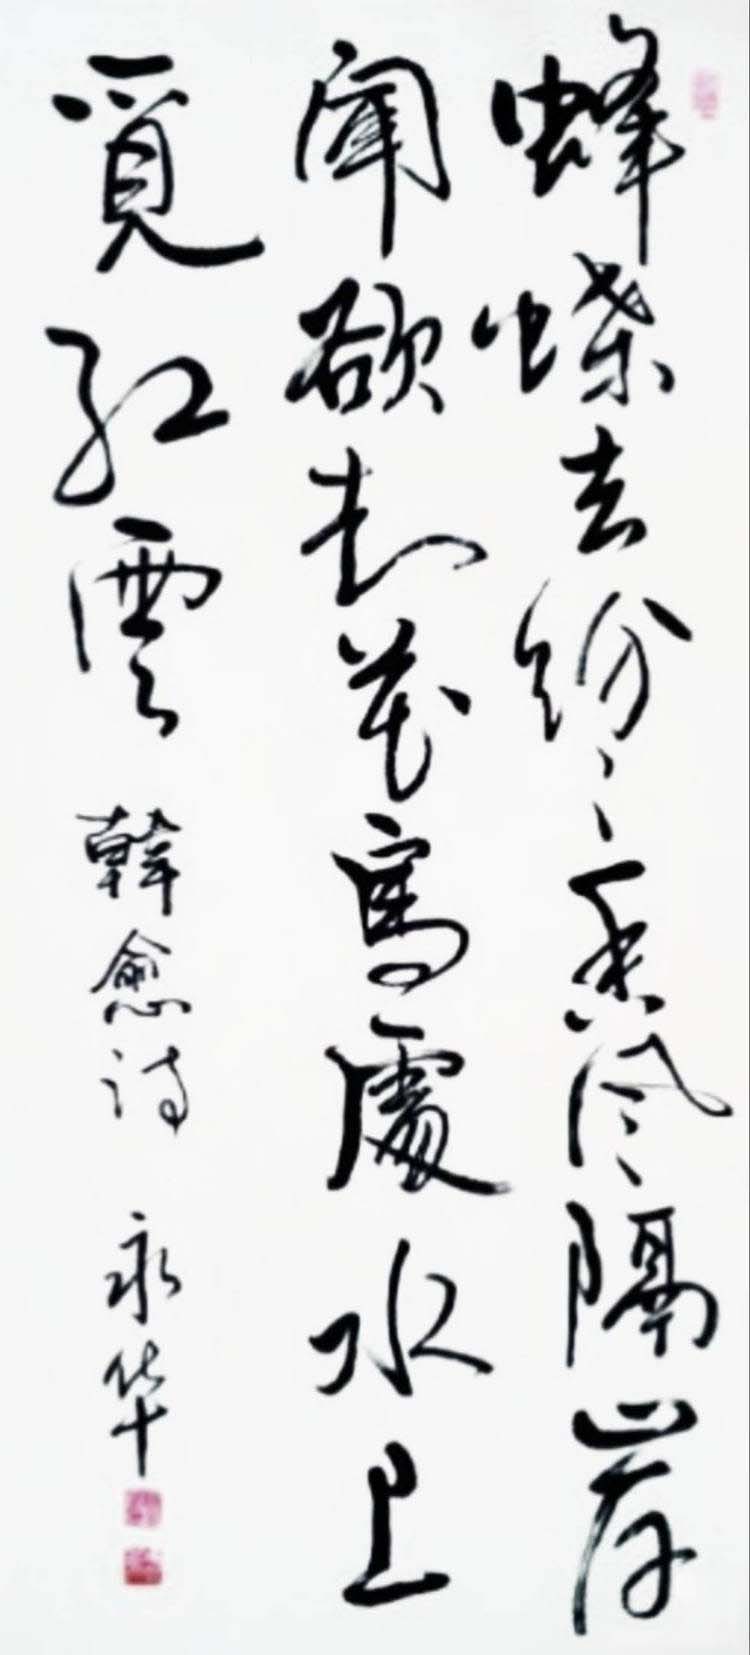 蜂蝶去紛々香風隔岸
聞欲知花島處水上
覓紅雲 韓愈詩 永华